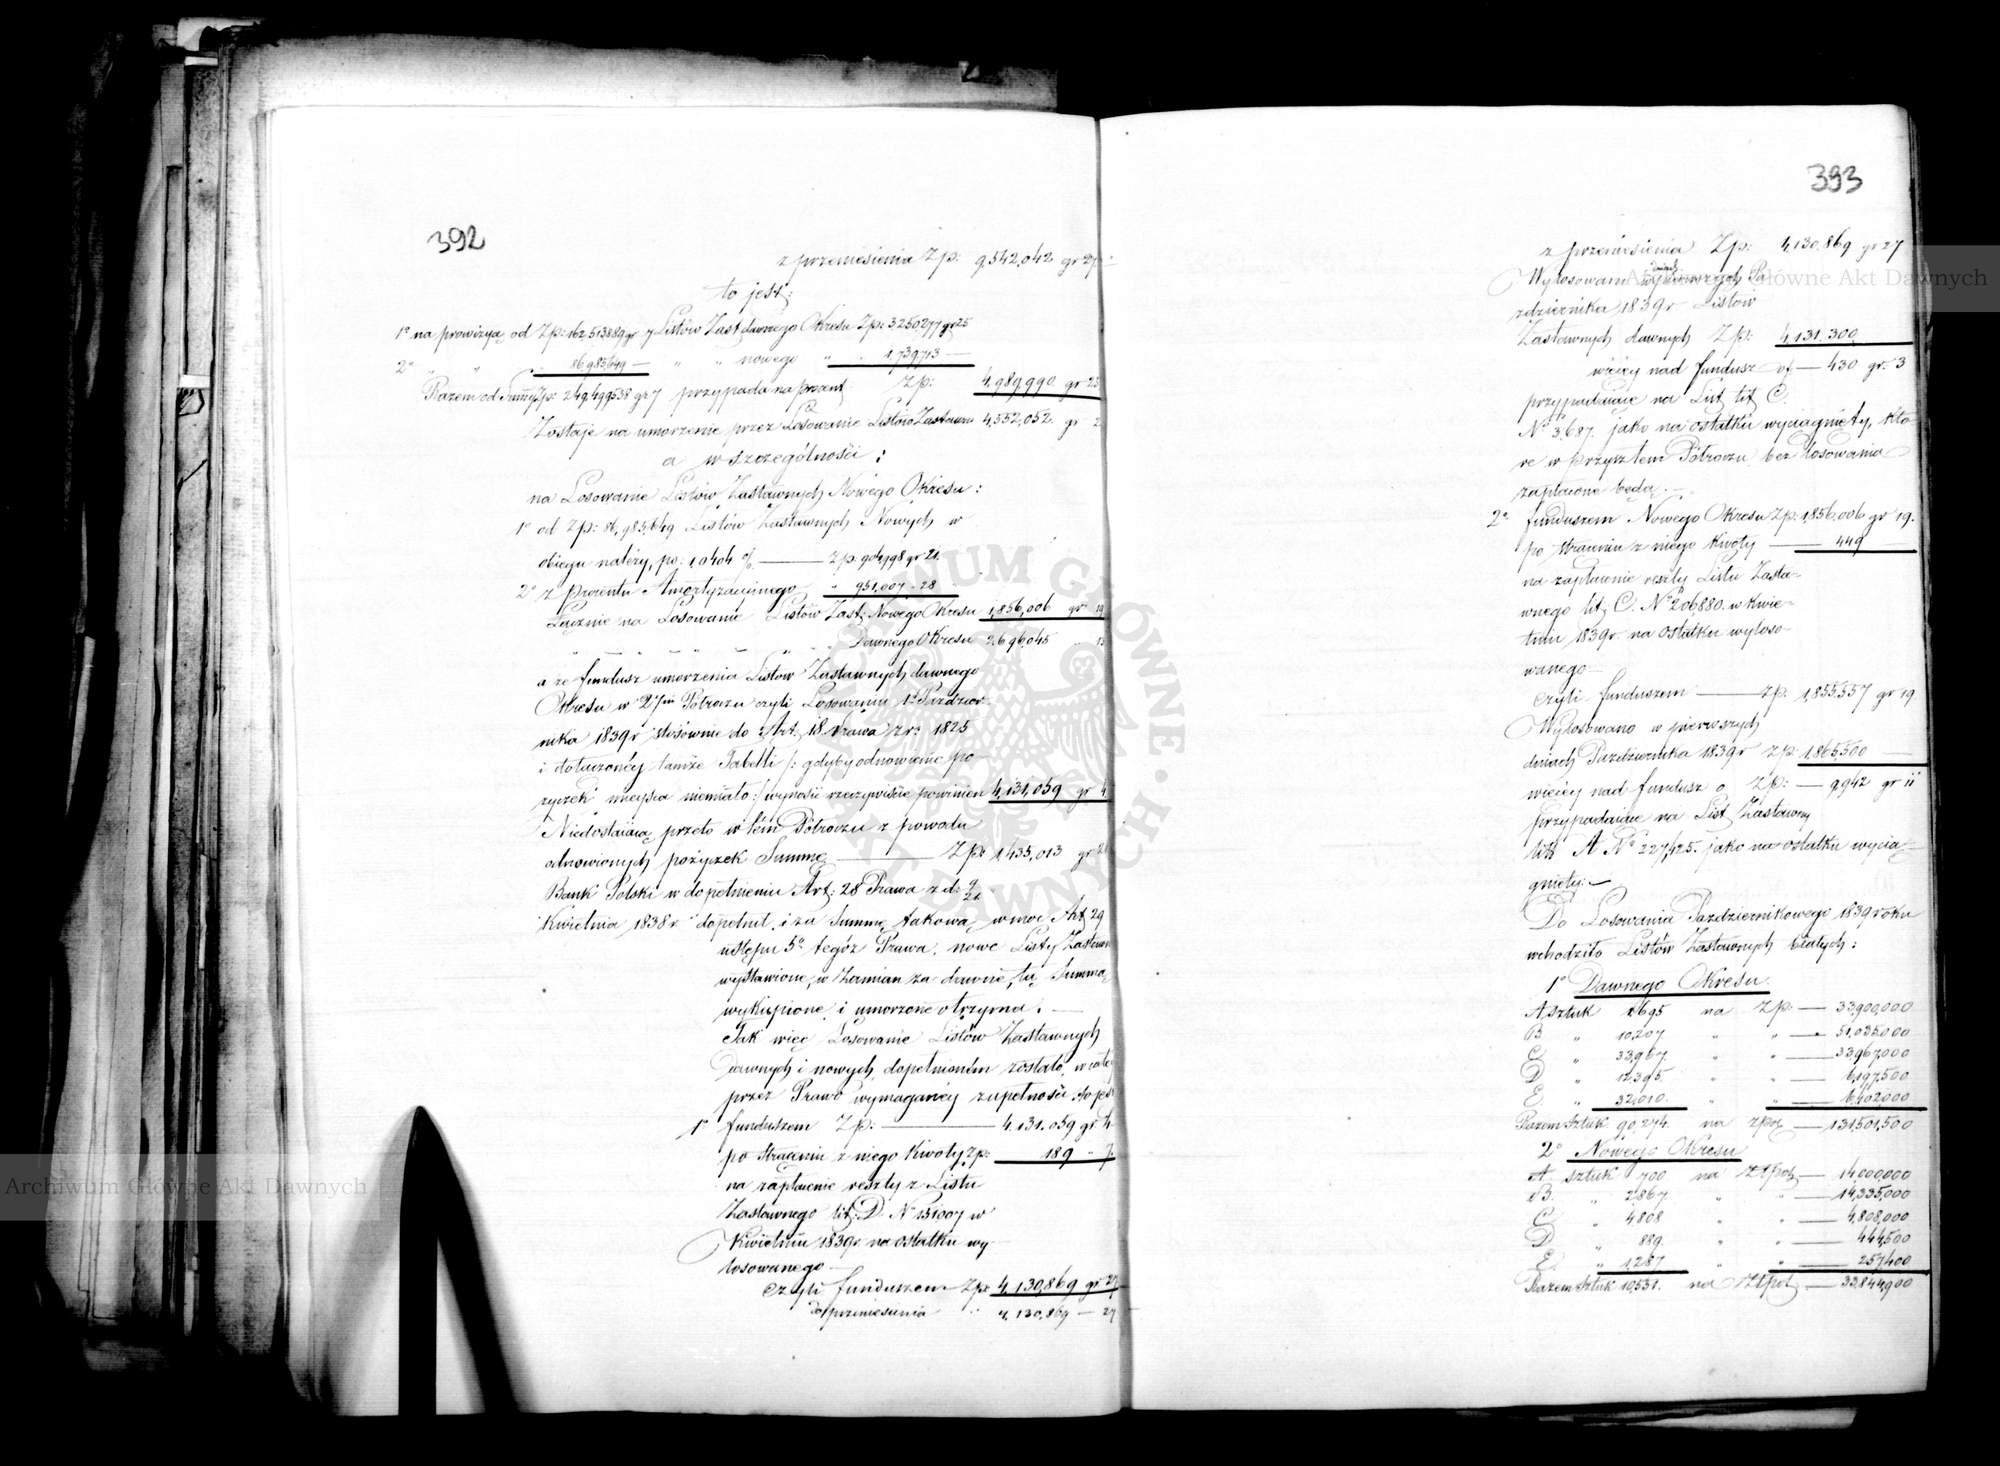 392
z przeniesienia Zp: 9,542,042 gr 27
to jest:
1° na prowizyą od Zp: 162,513889 gr 7 Listów Zast. dawnego Okresu Zp: 3250277 gr 25
2° " " 86,985,649 — " " nowego " " 1,739,713 —
Razem od Summy Zp: 249,499538 gr 7 przypada na procent Zp: 4,989,990 gr 25
Zostaje na umorzenie przez Losowanie Listów Zastawn 4,552,052. gr 2
a w szczególności:
na Losowanie Listów Zastawnych Nowego Okresu:
1° od Zp: 86,985,649 Listów Zastawnych Nowych w
obiegu należy, po: 1,0404 % — Zp. 904,998 gr 21.
2° z procentu Amortyzacyjnego " 951,007 " 28
Łącznie na Losowanie Listów Zast: Nowego Okresu 1,856,006 gr 19
" " " " " Dawnego Okresu 2,696,045 " 13
a że fundusz umorzenia Listów Zastawnych dawnego
Okresu w 27m Półroczu czyli Losowaniu 1° Paździer
nika 1839 r stósownie do Art. 18 Prawa z r: 1825
i dołączonéy tamże Tabelli /: gdyby odnowienie po-
życzek miejsca niemiało:/ wynosić rzeczywiście powinien 4,131,059 gr 4
Niedostaiącą przeto w tém Półroczu z powodu
odnowionych pożyczek Summę — Zp: 1,435,013 gr 21
Bank Polski w dopełnieniu Art: 28 Prawa z d: 9/21
Kwietnia 1838 r. dopełnił, i za Summę takową, w moc Art. 29
ustępu 5° tegóż Prawa, nowe Listy Zastawn
wystawione, w zamian za dawne, tą Summą
wykupione i umorzone otrzyma. —
Tak więc Losowanie Listów Zastawnych
Dawnych i nowych, dopełnioném zostało, w całéy
przez Prawo wymaganéy zupełności, to jest
1° funduszem Zp: — 4,131,059 gr 4
po strąceniu z niego Kwoty Zp: — 189 " 7.
na zapłacenie reszty z Listu
Zastawnego lit: D. N° 151007 w
Kwietniu 1839 r. na ostatku wy-
losowanego —
czyli funduszem Zp: 4,130,869 gr 27
do przeniesienia " 4,130,869 — 27
393
z przeniesienia Zp: 4,130,869 gr 27
Wylosowano w pierwszych dniach Pa-
zdziernika 1839 r Listów
Zastawnych dawnych Zp: 4,131,300
więcéy nad fundusz of — 430 gr. 3
przypadaiące na List lit C.
N° 3,687. jako na ostatku wyciągnięty, któ-
re w przyszłem Półroczu bez losowania
zapłacone będą. —
2° funduszem Nowego Okresu Zp: 1,856,006 gr 19.
po strąceniu z niego Kwoty — 449
na zapłacenie reszty Listu Zasta-
wnego lit. C. N° 206880. w Kwie-
tniu 1839 r na ostatku wyloso-
wanego —
czyli funduszem — Zp: 1,855,557 gr 19
Wylosowano w pierwszych
dniach Października 1839 r Zp: 1,865,500 —
więcéy nad fundusz o Zp: — 9,942 gr 11
przypadaiące na List Zastawny
lit A N° 227,425. jako na ostatku wycią-
gnięty. —
Do Losowania Pazdziernikowego 1839 roku
wchodziło Listów Zastawnych białych:
1° Dawnego Okresu
A sztuk 1695 na Zp: — 33,900,000
B " 10,207 " " — 51,035,000
C " 33,967. " " — 33,967,000
D " 12395. " " — 6,197,500
E " 32,010. " " — 6,402,000
Razem Sztuk 90,274. na Zpol — 131,501,500
2° Nowego Okresu
A sztuk 700 na Złpol — 14,000,000
B. " 2,867. " " — 14,335,000
C " 4808 " " — 4,808,000
D " 889. " " — 444,500
E " 1,287 " " — 257,400
Razem Sztuk 10,551. na Złpol — 33,844,900
Archiwum Główne Akt Dawnych
Archiwum Główne Akt Dawnych